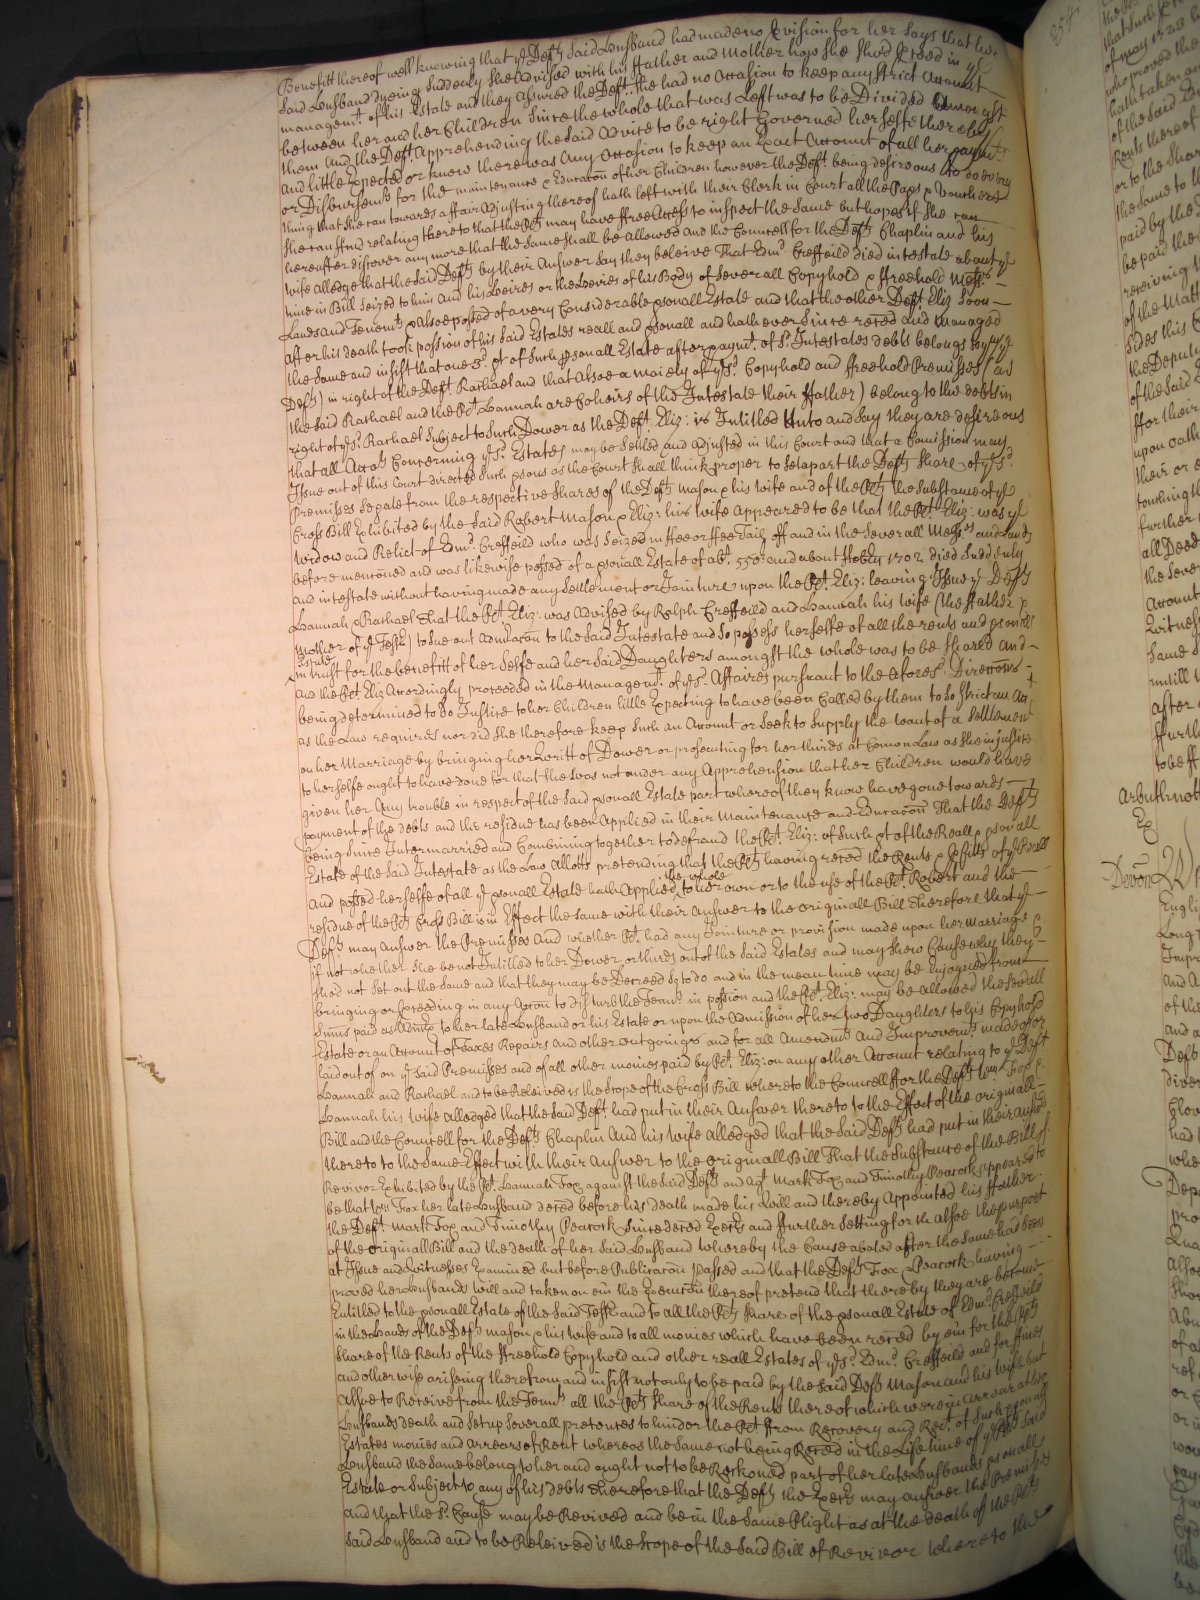 Benefitt thereof well knowing that ye Defts said Husband had made no Provision for her Says that her
said Husband dyeing Suddenly She Advised with his ffather and Mother how She Shod Proceed in ye
managemt. of his Estate and they Assured the Deft. She had no Occasion to keep any Strict Account
between her and her Children Since the whole that was Left was to be Divided Amongst
them And the Deft. Apprehending the said Advice to be right Governed herselfe thereby
and little Expected or knew there was Any Occasion to keep an Exact Account of all her paymts
or Disbursemts for the maintenance & Educacon of her Children however the Deft. being desirous to do every
thing that She can towards a ffair Adjusting thereof hath left with their Clerk in Court all the Paps & Vouchers
She can ffind relating thereto that the Plts may have ffree Access to inspect the Same but hopes if She can
hereafter discover any more that the Same Shall be allowed and the Councell for the Defts Chaplin and his
wife alledge that the said Defts by their Answer Say they beleive That Edmd Creffeild died intestate about ye
time in Bill Seized to him And his Heires or the Heires of his Body of Severall Copyhold & ffreehold Messs
Lands and Tenemts & alsoe possed of a very Considerable psonall Estate and that the other Deft. Eliz Soon
after his death took possion of his Said Estates reall and psonall and hath ever Since reced and Managed
the Same and insist that one 3d. pt of Such psonall Estate after paymt. of sd. Intestates debts belongs to
Defts) in right of the Deft. Rachael and that Alsoe a Moiety of ye sd. Copyhold and ffreehold Premisses (as
the said Rachael and the Plt. Hannah are Coheirs of the Intestate their ffather) belong to the debts in
right of ye sd. Rachael Subject to Such Dower as the Deft. Eliz: is Intitled Unto and Say they are desireous
that all Accots Concerning ye sd. Estates may be Settled and Adjusted in this Court and that a Comission may
Issue out of this Court directed Such psons as the Court Shall think proper to Set apart the Defts Share of ye sd.
Premisses Sepate from the respective Shares of the Defts Mason & his wife and of the Plts the Substance of ye
Cross Bill Exhibited by the Said Robert Mason & Eliz: his wife appeared to be that the Plt. Eliz: was ye
Widow and Relict of Edmd. Creffeild who was Seized in ffee or ffee Taile off and in the Severall Messs and Lands
before menconed and was likewise possed of a psonall Estate of abt. 550 and about 1702 died Suddenly
and intestate without haveing made any Settlement or Jointure upon the Plt. Eliz: leaveing Issue ye Defts
Hannah & Rachael That the Plt. Eliz: was Advised by Ralph Creffeild and Hannah his wife (the ffather &
Mother of ye Testr) to Sue out Admracon to the said Intestate and So possess herselfe of all the rents and psonall
Estate
in trust for the benefitt of her Selfe and her Said Daughters amongst the whole was to be Shared and
And the Plt. Eliz Accordingly proceeded in the Managemt. of ye sd. Affaires pursuant to the Aforesd. Direccons
being determined to do Justice to her Children little Expecting to have been Called by them to So Strict an Acct
as the Law requires nor did She therefore keep Such an Account or Seek to Supply the want of a Settlement
on her Marriage by bringing her Writt of Dower or prosecuting for her thirds at Comon Law as She in justice
to herselfe ought to have done for that She was not under any Apprehension that her Children would have
given her Any trouble in respect of the Said psonall Estate part whereof they know have gone towards
payment of the debts and the residue has been Applied in their Maintenance and Educacon That the Defts
being Since Intermarried and Combining together to defraud the Plt. Eliz: of Such pt of the Reall & psonall
Estate of the Said Intestate as the Law Allotts pretending that the Plts haveing reced the Rents & Pfitts of ye Reall
and possed herselfe of all ye psonall Estate hath Applied the whole to her own or to the use of the Plt. Robert and the
residue of the Plts Cross Bill is in Effect the Same with their Answer to the originall Bill Therefore that ye
Defts may Answer the Premisses And whether Plt. had any Jointure or provision made upon her Marriage &
if not whether She be not Intitled to her Dower, or thirds out of the Said Estates and may Shew Cause why they
Shod not Set out the Same and that they may be Decreed So to do and in the mean time may be Enjoyned from
bringing or Proceeding in any Accon to disturb the Tennts in possion and the Plt. Eliz: may be allowed the Severall
Sums paid as to her late Husband or his Estate or upon the Admission of her two Daughters to his Copyhold
Estate or an Account of Taxes Repairs and other outgoings and for all Amendmts And Improvemts made of or
laid out of on ye Said Premisses and of all other monies paid by Plt. Eliz: on any other Account relating to ye Defts
Hannah and Rachael and to be Releived is the Scope of the Cross Bill whereto the Councell ffor the Defts Wm Fox &
Hannah his wife alledged that the Said Deft had put in their Answer thereto to the Effect of the originall
Bill and the Councell for the Defts Chaplin And his wife alledged that the Said Defts had put in their Answer
thereto to the Same Effect with their Answer to the originall Bill That the Substance of the Bill of
Revivor Exhibited by the Plt. Hannah Fox against the Said Defts and agt Mark Fox and Timothy Peacock appeared to
be that Wm Fox her late Husband deced before his death made his Will and thereby Appointed his ffather
the Deft. Mark Fox and Timothy Peacock Since deced Exects and ffurther Setting forth alsoe the purport
of the originall Bill and the death of her Said Husband whereby the Cause abated after the Same had been
at Issue and Witnesses Examined but before Publicacon passed and that the Defts Fox & Peacock haveing
proved her Husbands Will and taken on em the Execucon thereof pretend that thereby they are become
Entitled to the psonall Estate of the Said Testr. and to all the Plts Share of the psonall Estate of Edmd. Creffeild
in the Hands of the Defts Mason & his Wife and to all monies which have been reced by em for the Plts
Share of the Rents of the ffreehold Copyhold and other reall Estates of ye sd. Edmd. Creffeild and for ffines
and otherwise ariseing therefrom and insist not only to be paid by the Said Defts Mason and his Wife but
Alsoe to Receive from the Tennts all the Plts Share of the Rents thereof which were in arrear at her
Husbands death and Set up Severall pretences to hinder the Plt. ffrom Recovery and Rect. of Such psonall
Estates monies and arrears of Rent whereas the Same not being Reced in the Life time of ye Plts Said
Husband the Same belong to her and ought not to be Reckoned part of her late Husbands psonall
Estate or Subject to any of his debts Therefore that the Defts the Exects may answer the Premisses
and that the sd. Cause may be Revived and be in the Same Plight as at the death of the Plts
Said Husband and to be Releived is the Scope of the Said Bill of Revivor whereto the
254
Arbuthnott
Devon